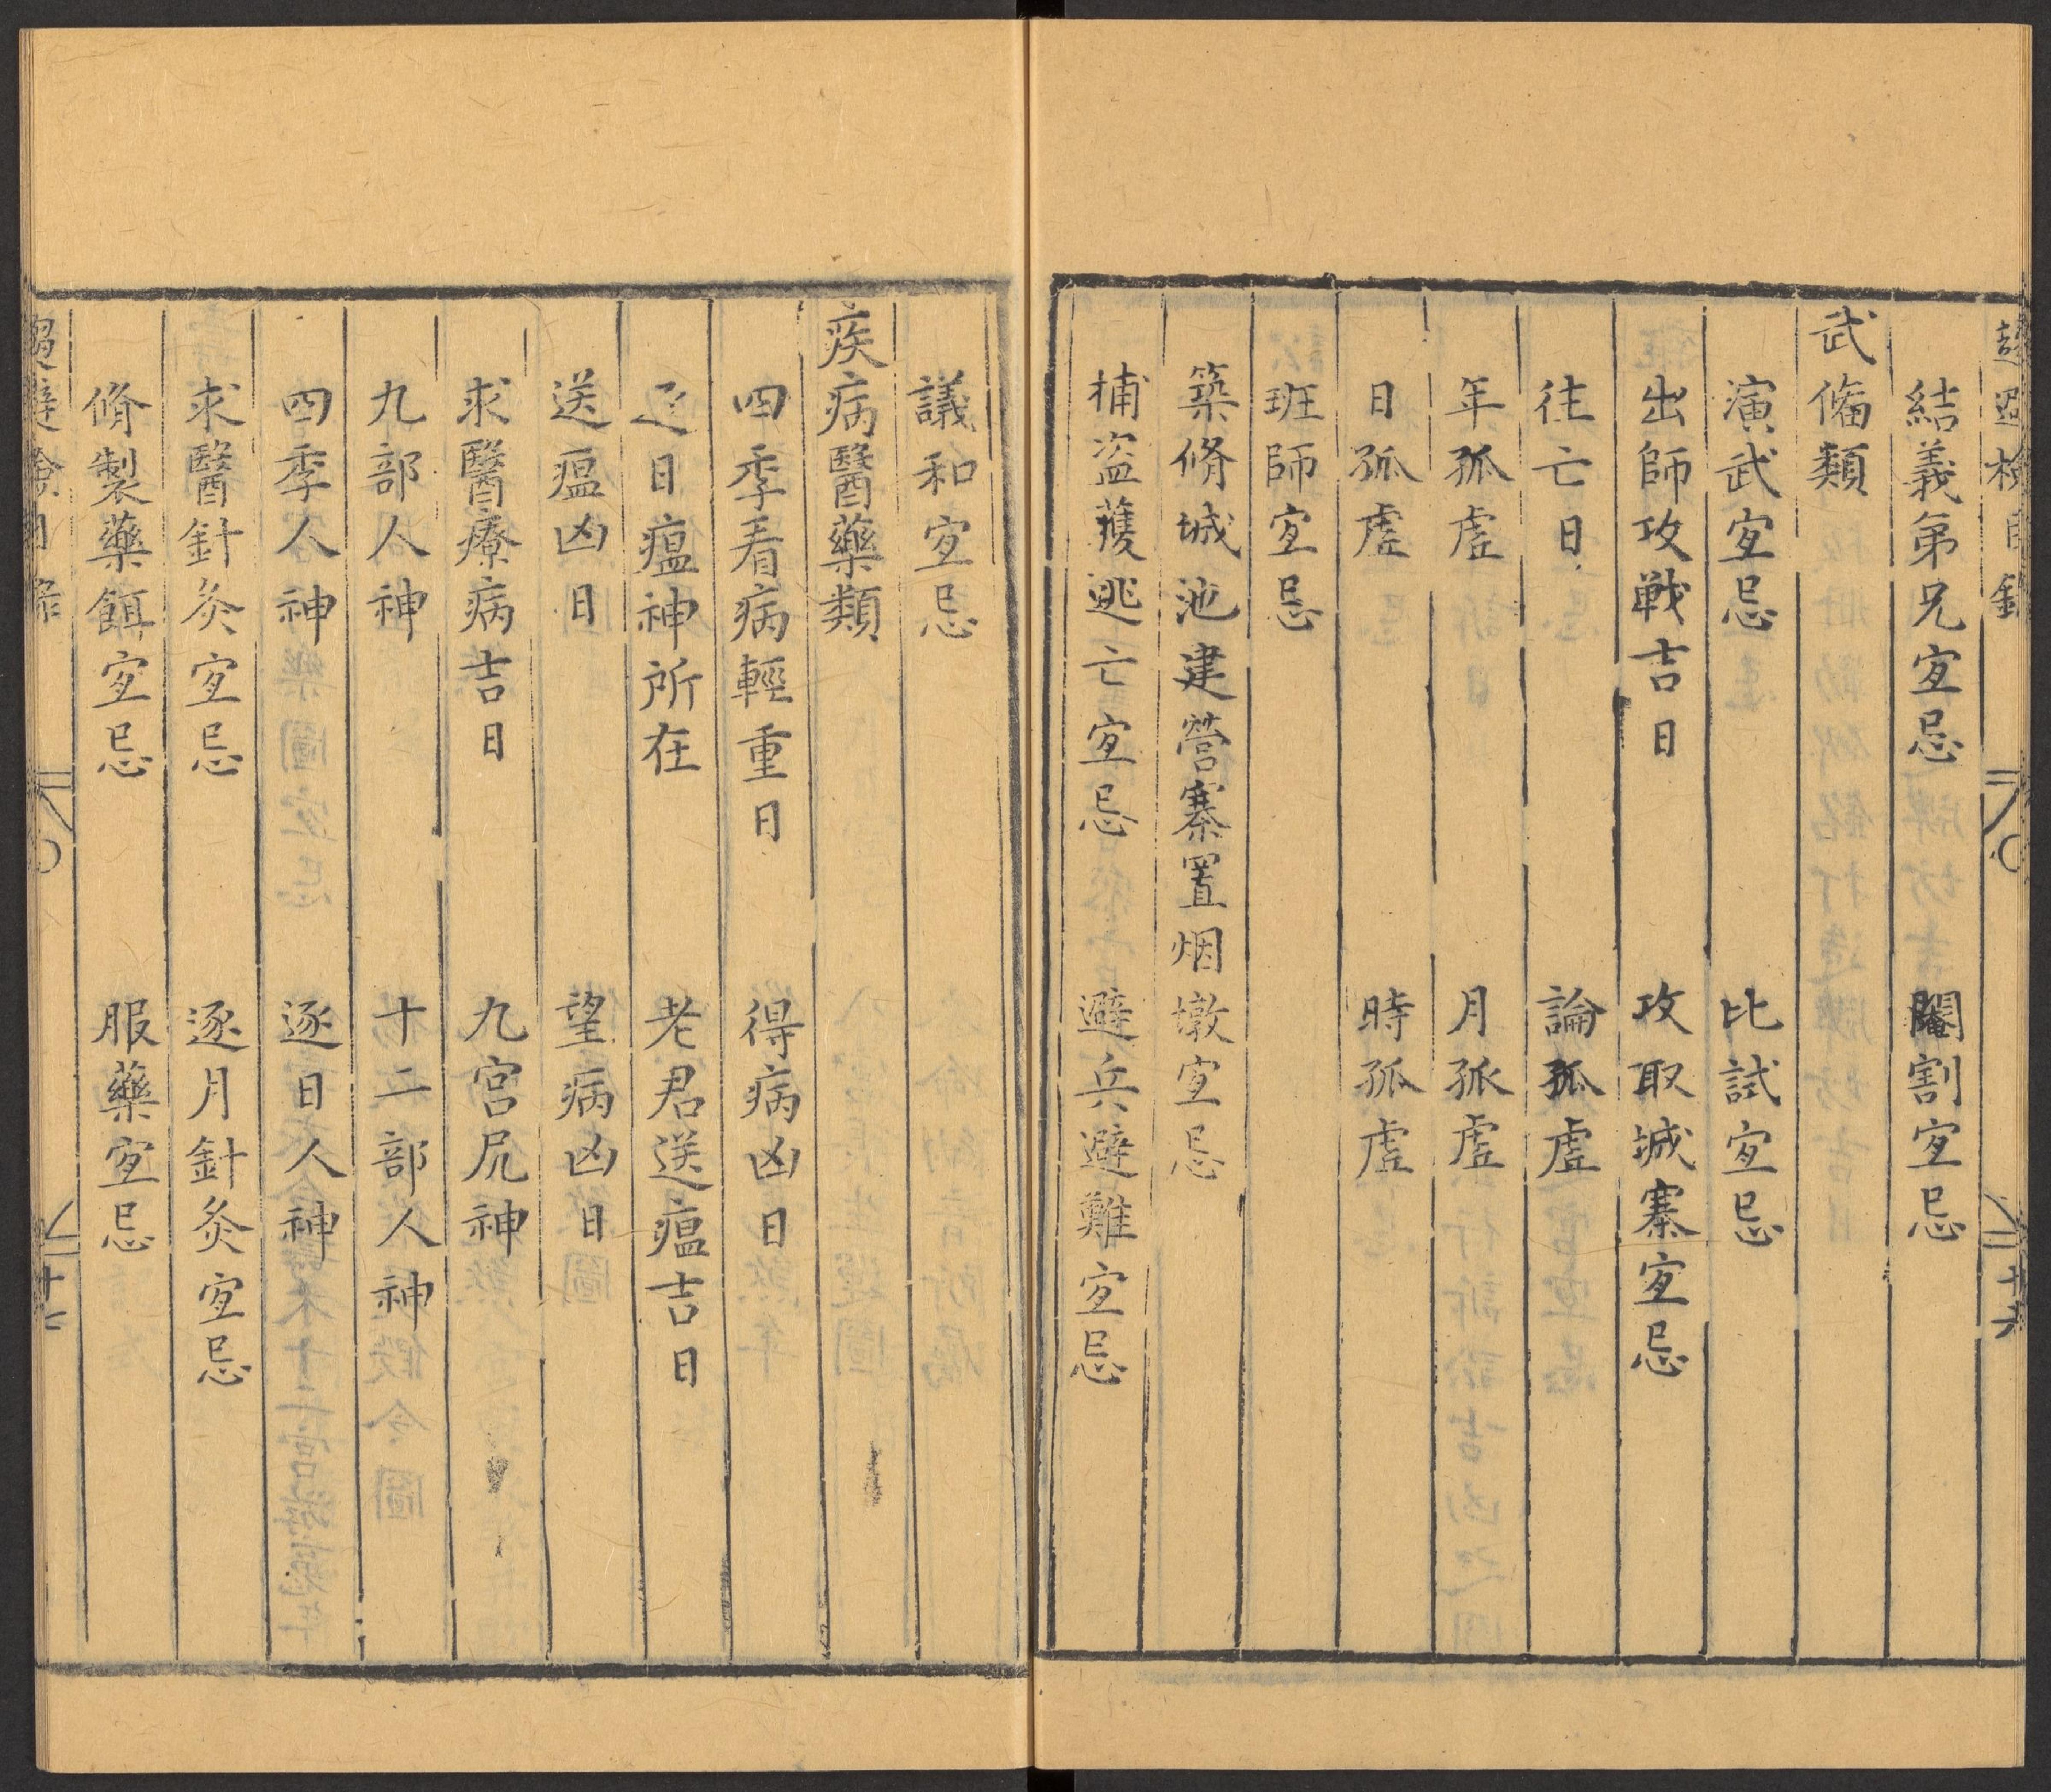 趍避檢目錄
十六
結義弟兄宐忌　閹割宐忌
武俻類
演武宐忌　比試宐忌
出師攻戰吉日　攻取城寨宐忌
往亡日　論孤虛
年孤虛　月孤虛
日孤虛　時孤虛
班師宐忌
築脩城池建營寨置烟墩宐忌
捕盗獲逃亡宐忌　避兵避難宐忌
議和宐忌
疾病醫藥類
四季看病輕重日　得病凶日
逐日瘟神所在　老君送瘟吉日
送瘟凶日　望病凶日
求醫療病吉日　九宮尻神
九部人神　十二部人神
四季人神　逐日人神
求醫針灸宐忌　逐月針灸宐忌
脩製藥餌宐忌　服藥宐忌
趍避檢目錄
十七